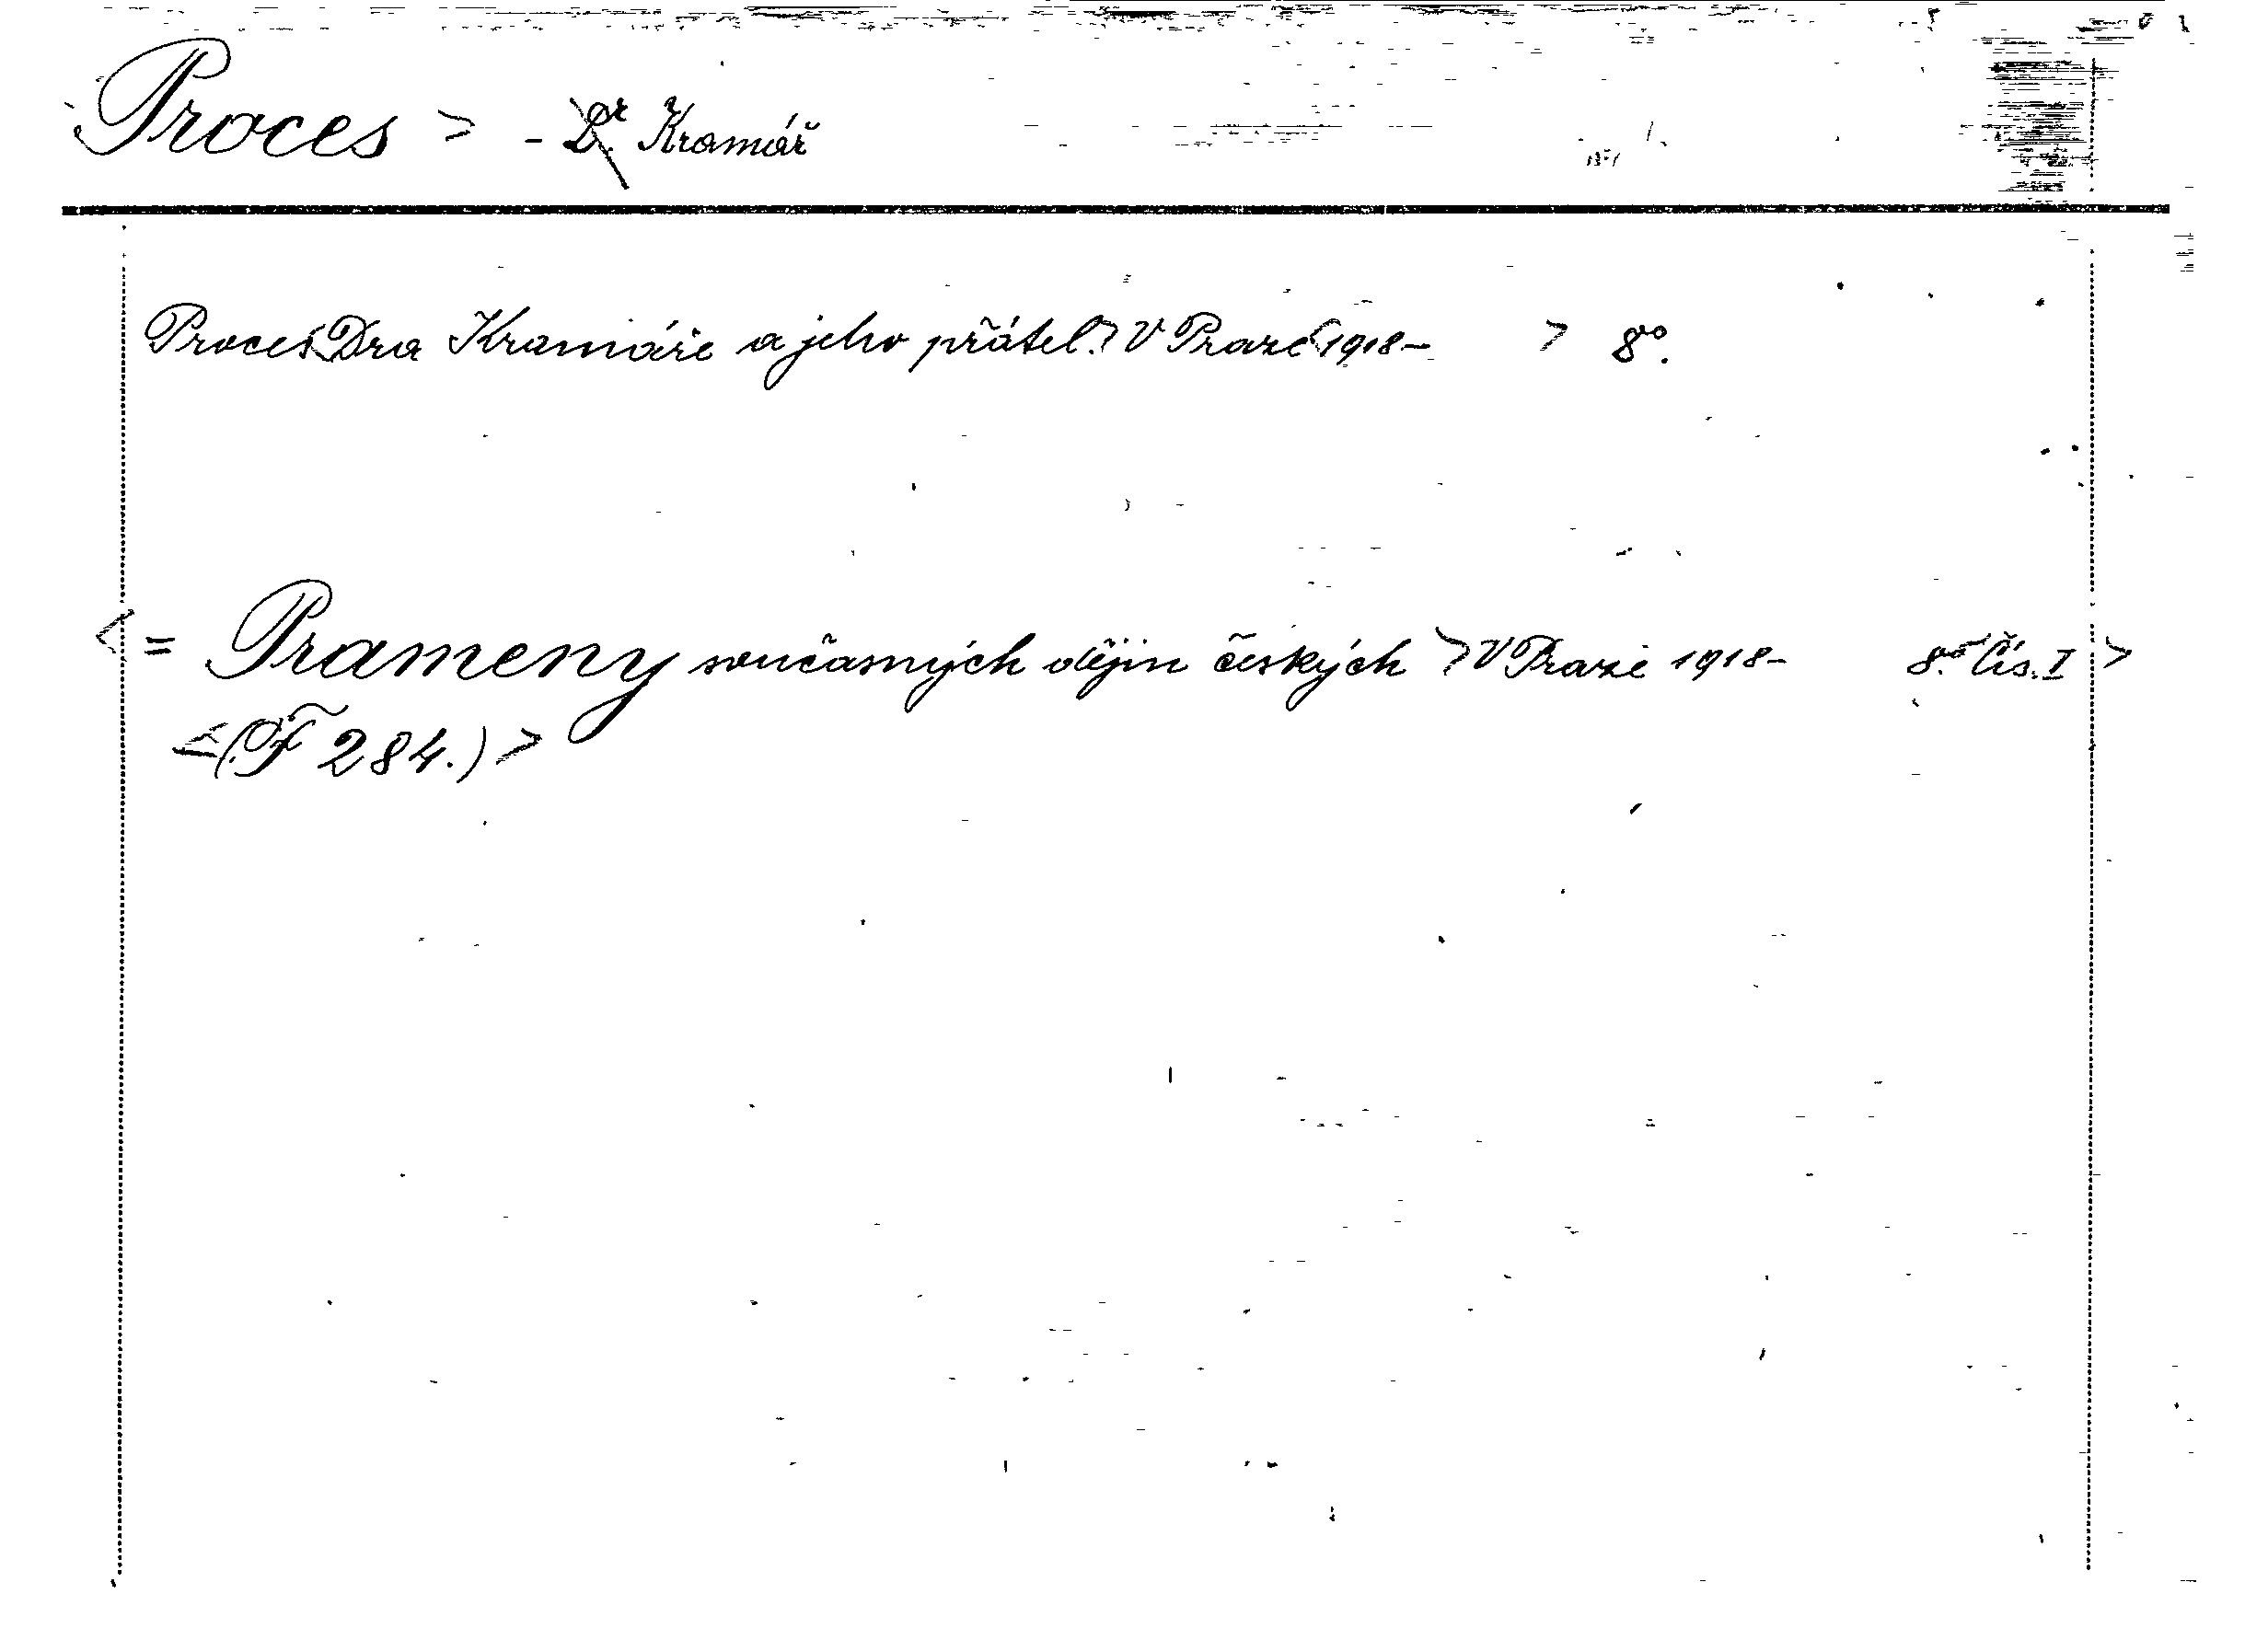 Proces > - Dr. Kramář
Proces Dra Kramáře a jeho přátel. > V Praze < 1918- > 8°.
< = Prameny současných dějin českých > V Praze 1918- 8°. Čís. I >
< (F 284.) >